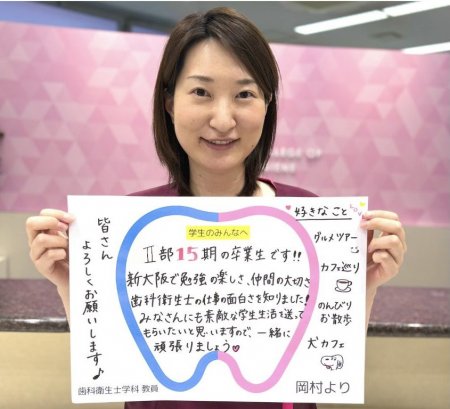 学生のみんなへ
Ⅱ部15期の卒業生です!!
新大阪で勉強の楽しさ、仲間の大切さ
歯科衛生士の仕事の面白さを知りました!
みなさんにも素敵な学生生活を送って
もらいたいと思いますので、一緒に
頑張りましょう♥
皆さん
よろしくお願いします♪
好きなこと
グルメツアー
カフェ巡り
のんびり
お散歩
犬カフェ
歯科衛生士学科 教員
岡村より